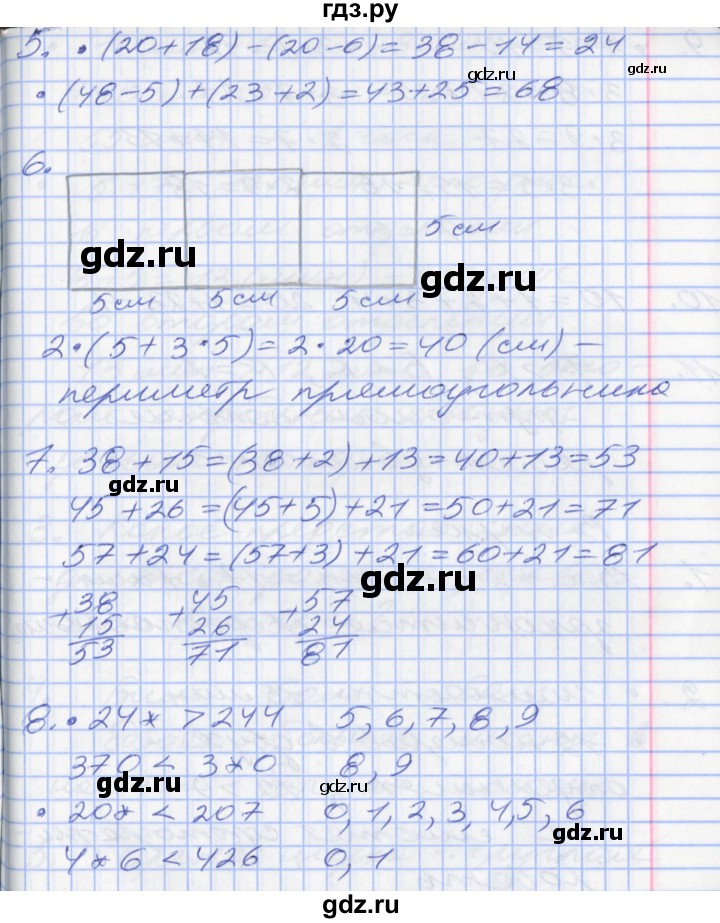 гдз.ру
5. • (20+18)-(20-6)=38-14=24
gdz.ru
gdz.ru
• (48-5)+(23+2)=43+25=68
6.
5 см
gdz.ru
gdz.ru
5см 5см 5см
2•(5+3•5)=2•20=40 (см) –
периметр прямоугольника
7. 38+15=(38+2)+13=40+13=53
gdz.ru
45+26=(45+5)+21=50+21=71
57+24=(57+3)+21=60+21=81
gdz.ru
+38 +45 +57
15 26 24
53 71 81
8. • 24* > 244 5, 6, 7, 8, 9
370 < 3*0 8, 9
gdz.ru
• 20* < 207 0, 1, 2, 3, 4, 5, 6
gdz.ru
4*6 < 426 0, 1
gdz.ru